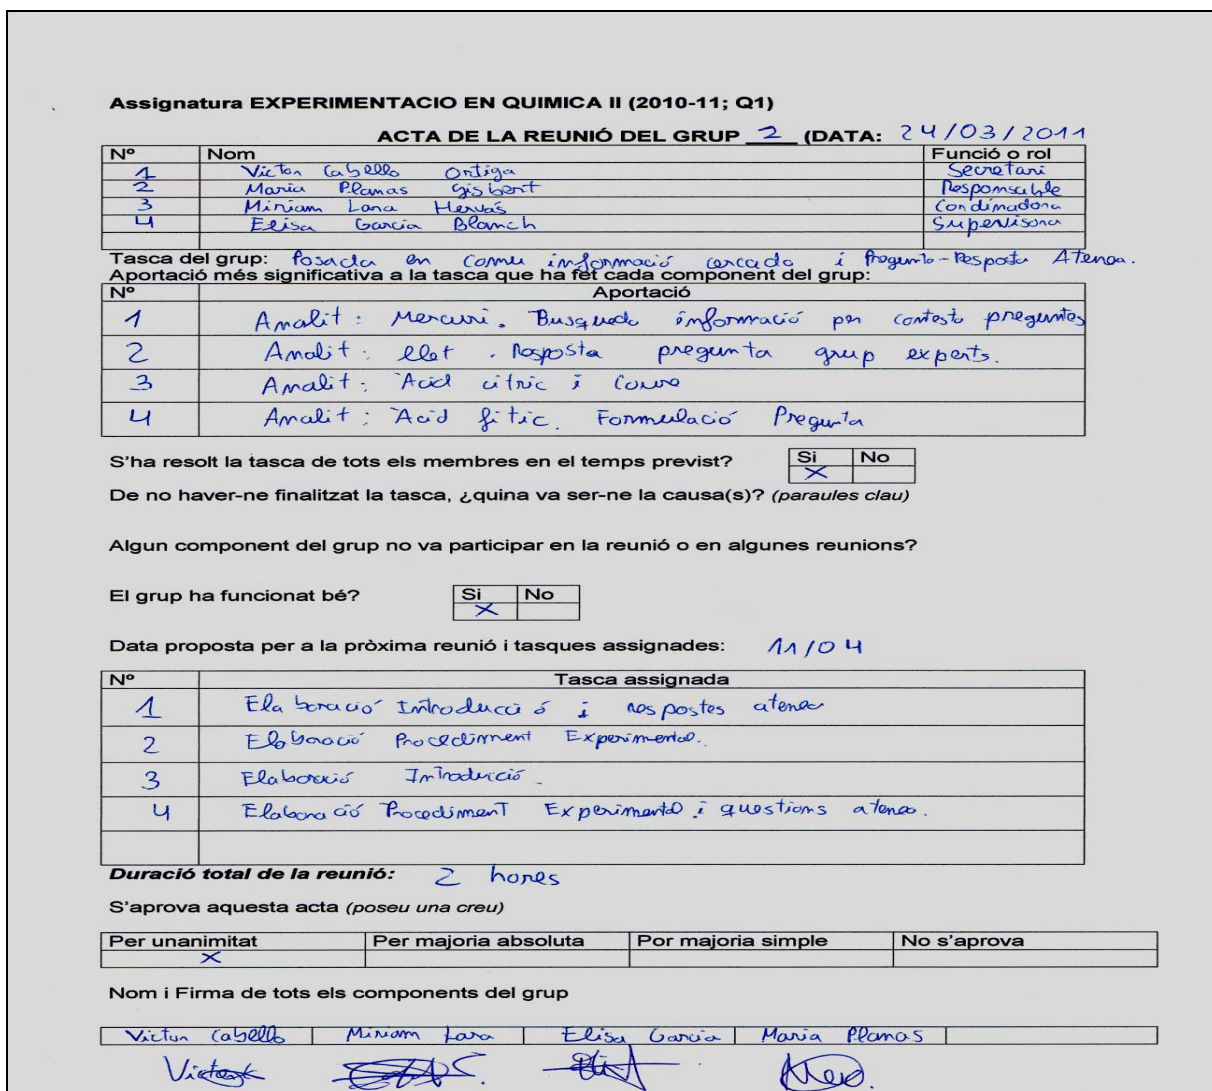 Assignatura EXPERIMENTACIO EN QUIMICA II (2010-11; Q1)
ACTA DE LA REUNIÓ DEL GRUP 2 (DATA: 24/03/2011
Nº Nom Funció o rol
1 Victor Cabello Ortiga Secretari
2 Maria Planas Gisbert Responsable
3 Miriam Lara Hervás Cordinadora
4 Elisa Garcia Blanch Supervisora
Tasca del grup: Posada en comu informació cercada i Pregunta-Resposta Atenea.
Aportació més significativa a la tasca que ha fet cada component del grup:
Nº Aportació
1 Analit: Mercuri. Busqueda informació per contesta preguntes
2 Analit: llet. Resposta pregunta grup experts.
3 Analit: Àcid citric i Coure
4 Analit: Àcid fític. Formulació Pregunta
S'ha resolt la tasca de tots els membres en el temps previst? Si No
X
De no haver-ne finalitzat la tasca, ¿quina va ser-ne la causa(s)? (paraules clau)
Algun component del grup no va participar en la reunió o en algunes reunions?
El grup ha funcionat bé? Si No
X
Data proposta per a la pròxima reunió i tasques assignades: 11/04
Nº Tasca assignada
1 Elaboració Introducció i respostes atenea
2 Elaboració Procediment Experimental.
3 Elaboració Introducció.
4 Elaboració Procediment Experimental i questions atenea.
Duració total de la reunió: 2 hores
S'aprova aquesta acta (poseu una creu)
Per unanimitat Per majoria absoluta Por majoria simple No s'aprova
X
Nom i Firma de tots els components del grup
Victor Cabello Miriam Lara Elisa Garcia Maria Planas